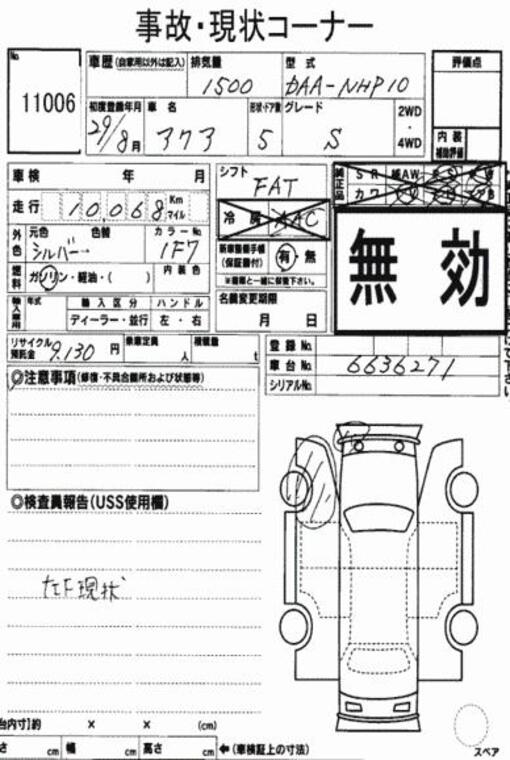 事故・現状コーナー
No.
11006
車歴 (自家用以外は記入)
排気量
1500
型式
DAA-NHP10
評価点
初度登録年月
29/8月
車名
アクア
形状・ドア数
5
グレード
S
2WD
・
4WD
内装
補助評価
車検 年 月
走行 10,068 Km
マイル
シフト
FAT
純正品
SR
AW
カワ
冷房 AAC
外色
元色 色替
シルバー→
カラーNo.
1F7
燃料
ガソリン・軽油・( )
内装色
新車整備手帳
(保証書付)
有・無
※書類と一緒に保管下さい。
無効
輸入車用
年式
輸入区分
ハンドル
ディーラー・並行
左・右
名義変更期限
月 日
リサイクル
預託金
9,130 円
乗車定員
人
積載量
t
登録No.
車台No.
6636271
シリアルNo.
◎注意事項(修復・不具合箇所および状態等)
◎検査員報告(USS使用欄)
左F現状
台内寸]約 × × (cm)
さ cm 幅 cm 高さ cm ←(車検証上の寸法)
スペア